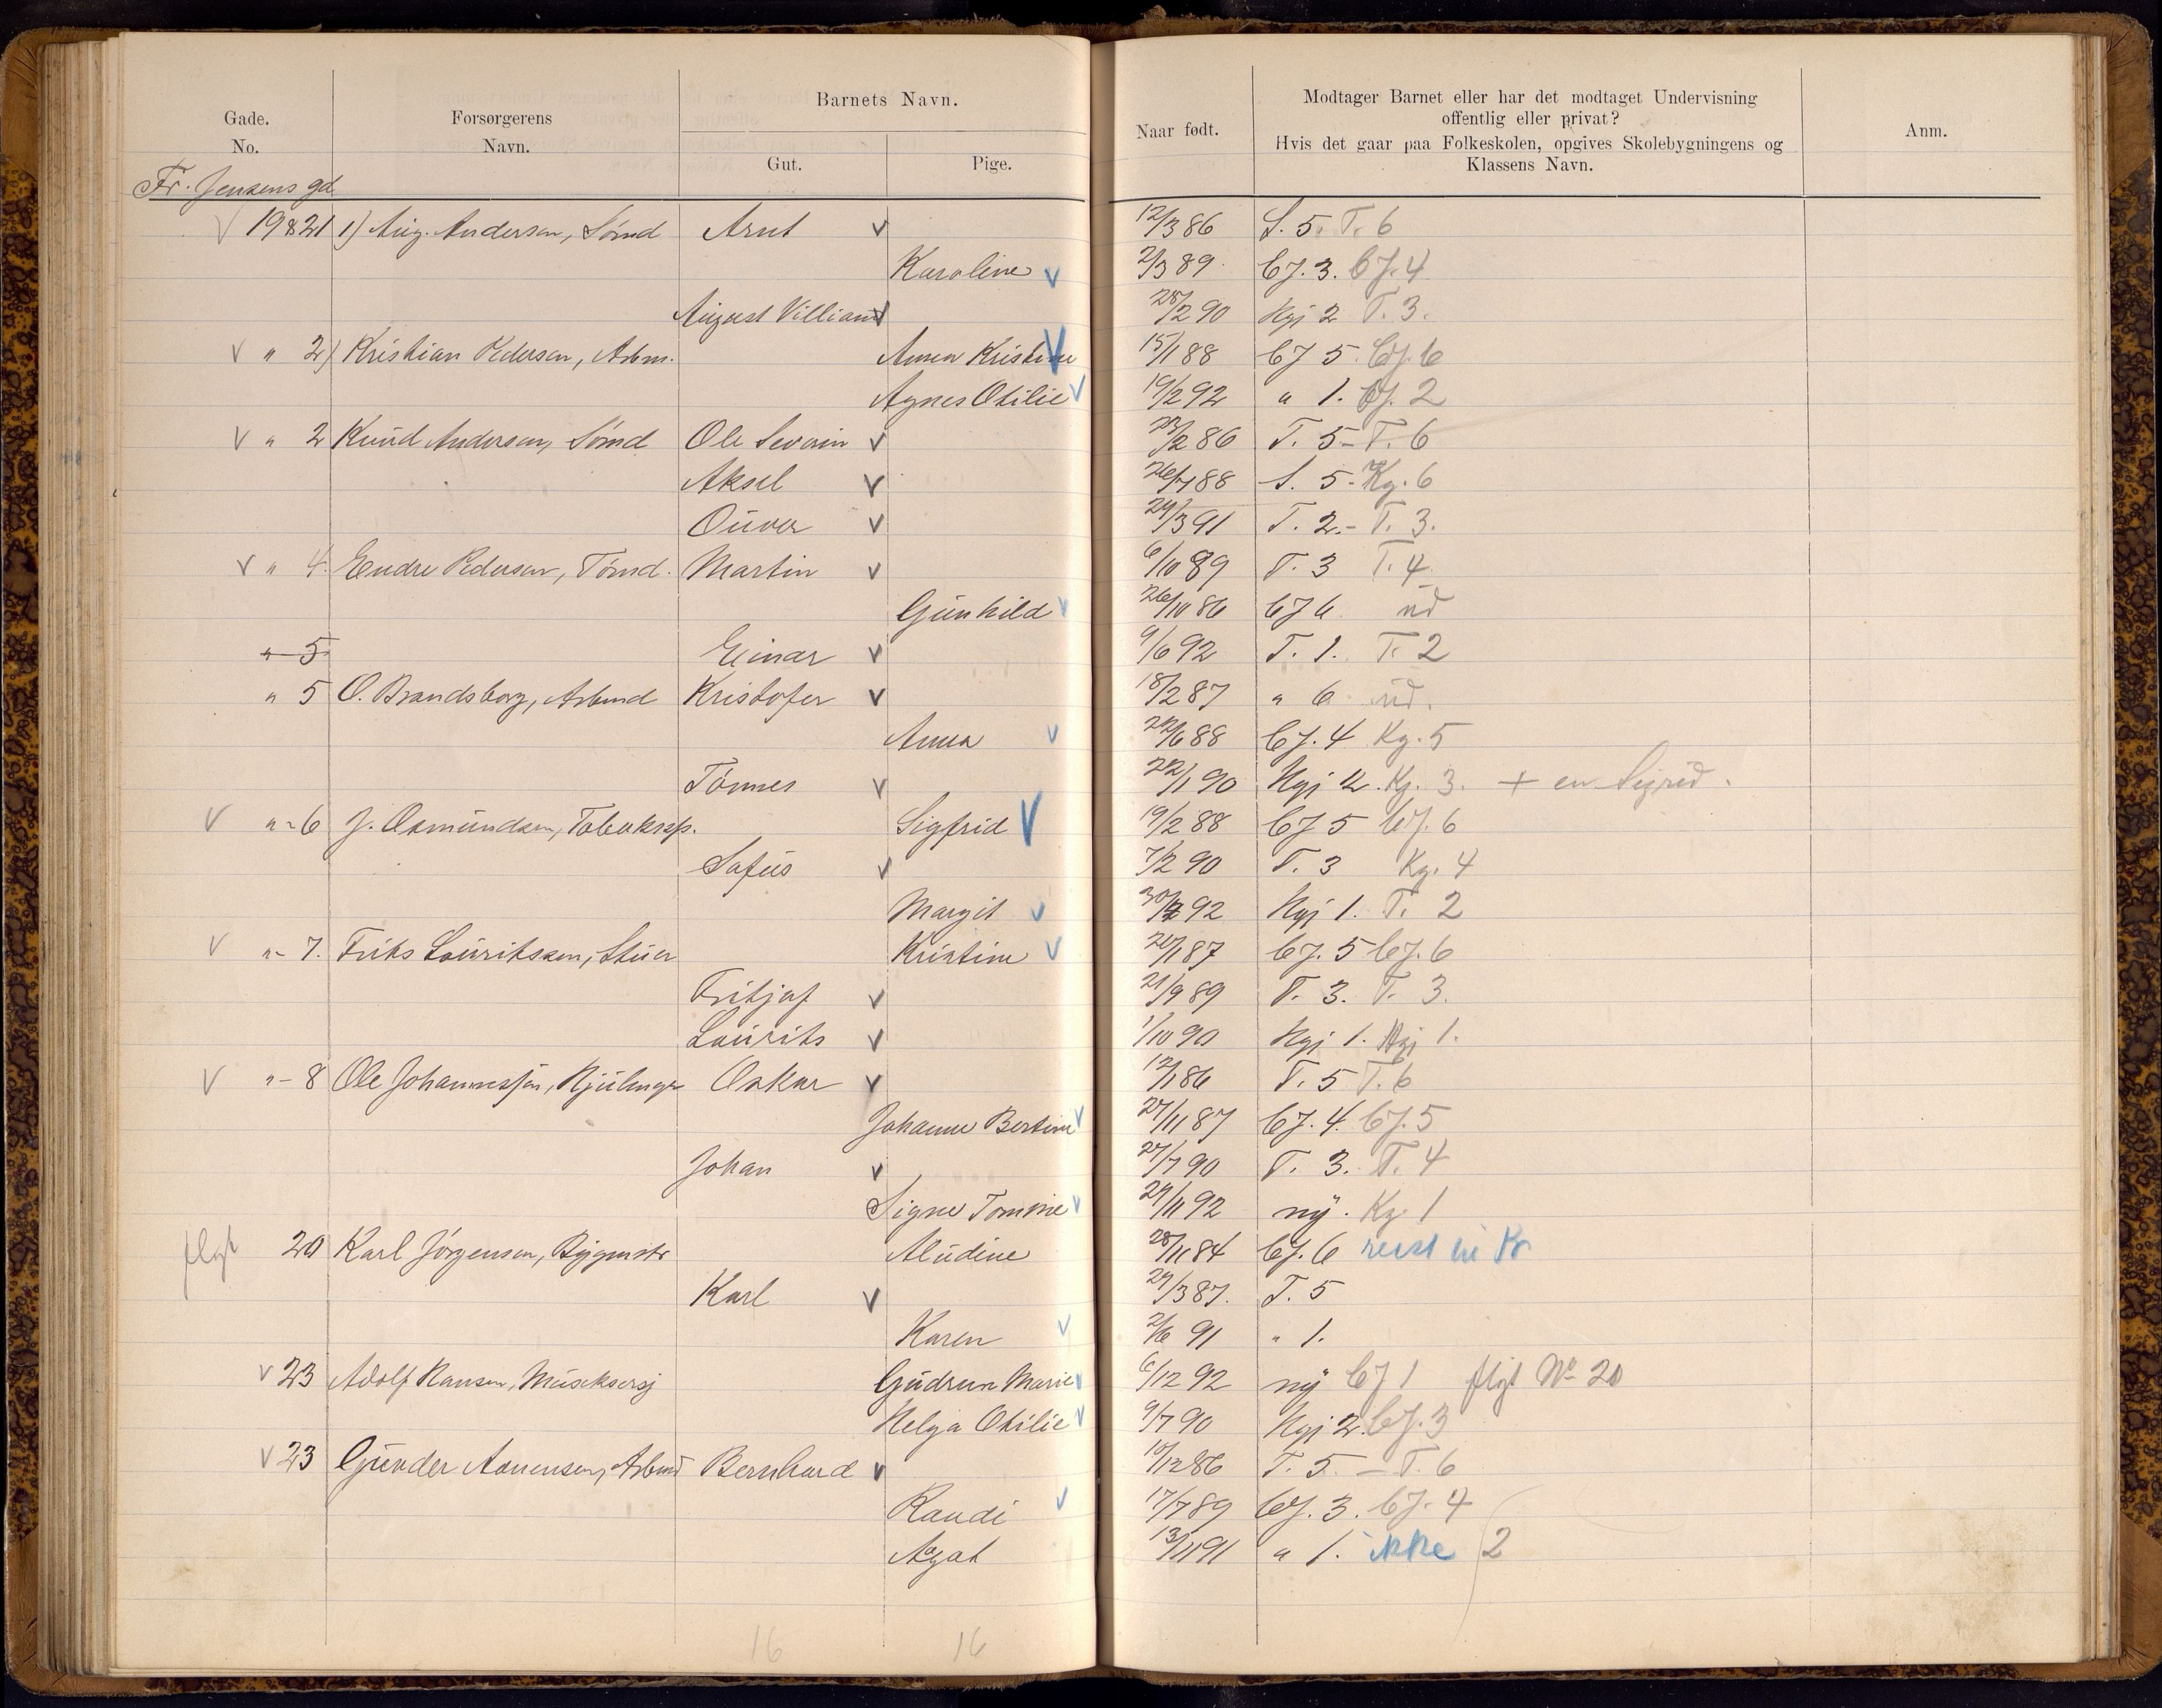 Gade.
No.
Forsørgerens
Navn.
Barnets Navn.
Gut.
Pige.
Naar født.
Modtager Barnet eller har det modtaget Undervisning
offentlig eller privat?
Hvis det gaar paa Folkeskolen, opgives Skolebygningens og
Klassens Navn.
Anm.
Fr. Jensens gd
V 19&21 1) Aug. Andersen, Sømd Arnt V 12/3 86 S. 5. T. 6
Karoline V 2/3 89 CJ. 3. CJ. 4
August Villiam V 28/2 90 Kgj 2 T. 3.
V " 2) Kristian Pedersen, Arbm. Anna Kristine V 15/1 88 CJ 5. CJ. 6
Agnes Otilie V 19/2 92 " 1. CJ. 2
V " 2 Knud Andersen, Sømd Ole Severin V 23/2 86 T. 5 - T. 6
Aksel V 26/7 88 S. 5 - Kg. 6
V 29/3 91 T. 2. - T. 3.
V " 4. Endre Pedersen, Tømd. Martin V 6/10 89 T. 3 T. 4.
Gunhild V 26/10 86 CJ 6 ud
" 5 Einar V 9/6 92 T. 1. T. 2
" 5 O. Brandsborg, Arbmd Kristofer V 18/2 87 " 6 ud.
Anna V 22/6 88 CJ. 4 Kg. 5
Tønnes V 22/1 90 Kgj 2. Kg. 3. + en Sigrid.
V " 6 J. Osmundsen, Sigfrid V 19/2 88 CJ 5 CJ. 6
Sofus V 7/2 90 T. 3 Kg. 4
Margit V 92 Kgj 1. T. 2
V " 7. Friks Lauritssen, Stuer Kristine V 87 CJ. 5 CJ. 6
Fritjof V 21/9 89 T. 3. T. 3.
Laurits V 1/10 90 Kgj 1. Kgj 1.
V " 8 Ole Johannessen, Oskar V 12/1 86 T. 5 T. 6
Johanne Bertine V 27/11 87 CJ. 4. CJ. 5
Johan V 27/7 90 T. 3. T. 4
Signe Tomine V 29/11 92 ny. Kg. 1
flyt 20 Karl Jørgensen, Bygmstr Aludine 28/11 84 CJ. 6 reist til Kr
Karl V 29/3 87. T. 5
Karen V 2/6 91 " 1.
V 23 Adolf Hansen, Gudrun Marie V 6/12 92 ny CJ 1 flyt No 20
Helga Otilie V 9/7 90 Kgj 2. CJ. 3
V 23 Gunder Aanensen, Arbmd Bernhard V 10/12 86 T. 5 - T. 6
Randi V 17/7 89 CJ. 3. CJ. 4
Aagot 13/11 91 " 1. ikke 2
16 16